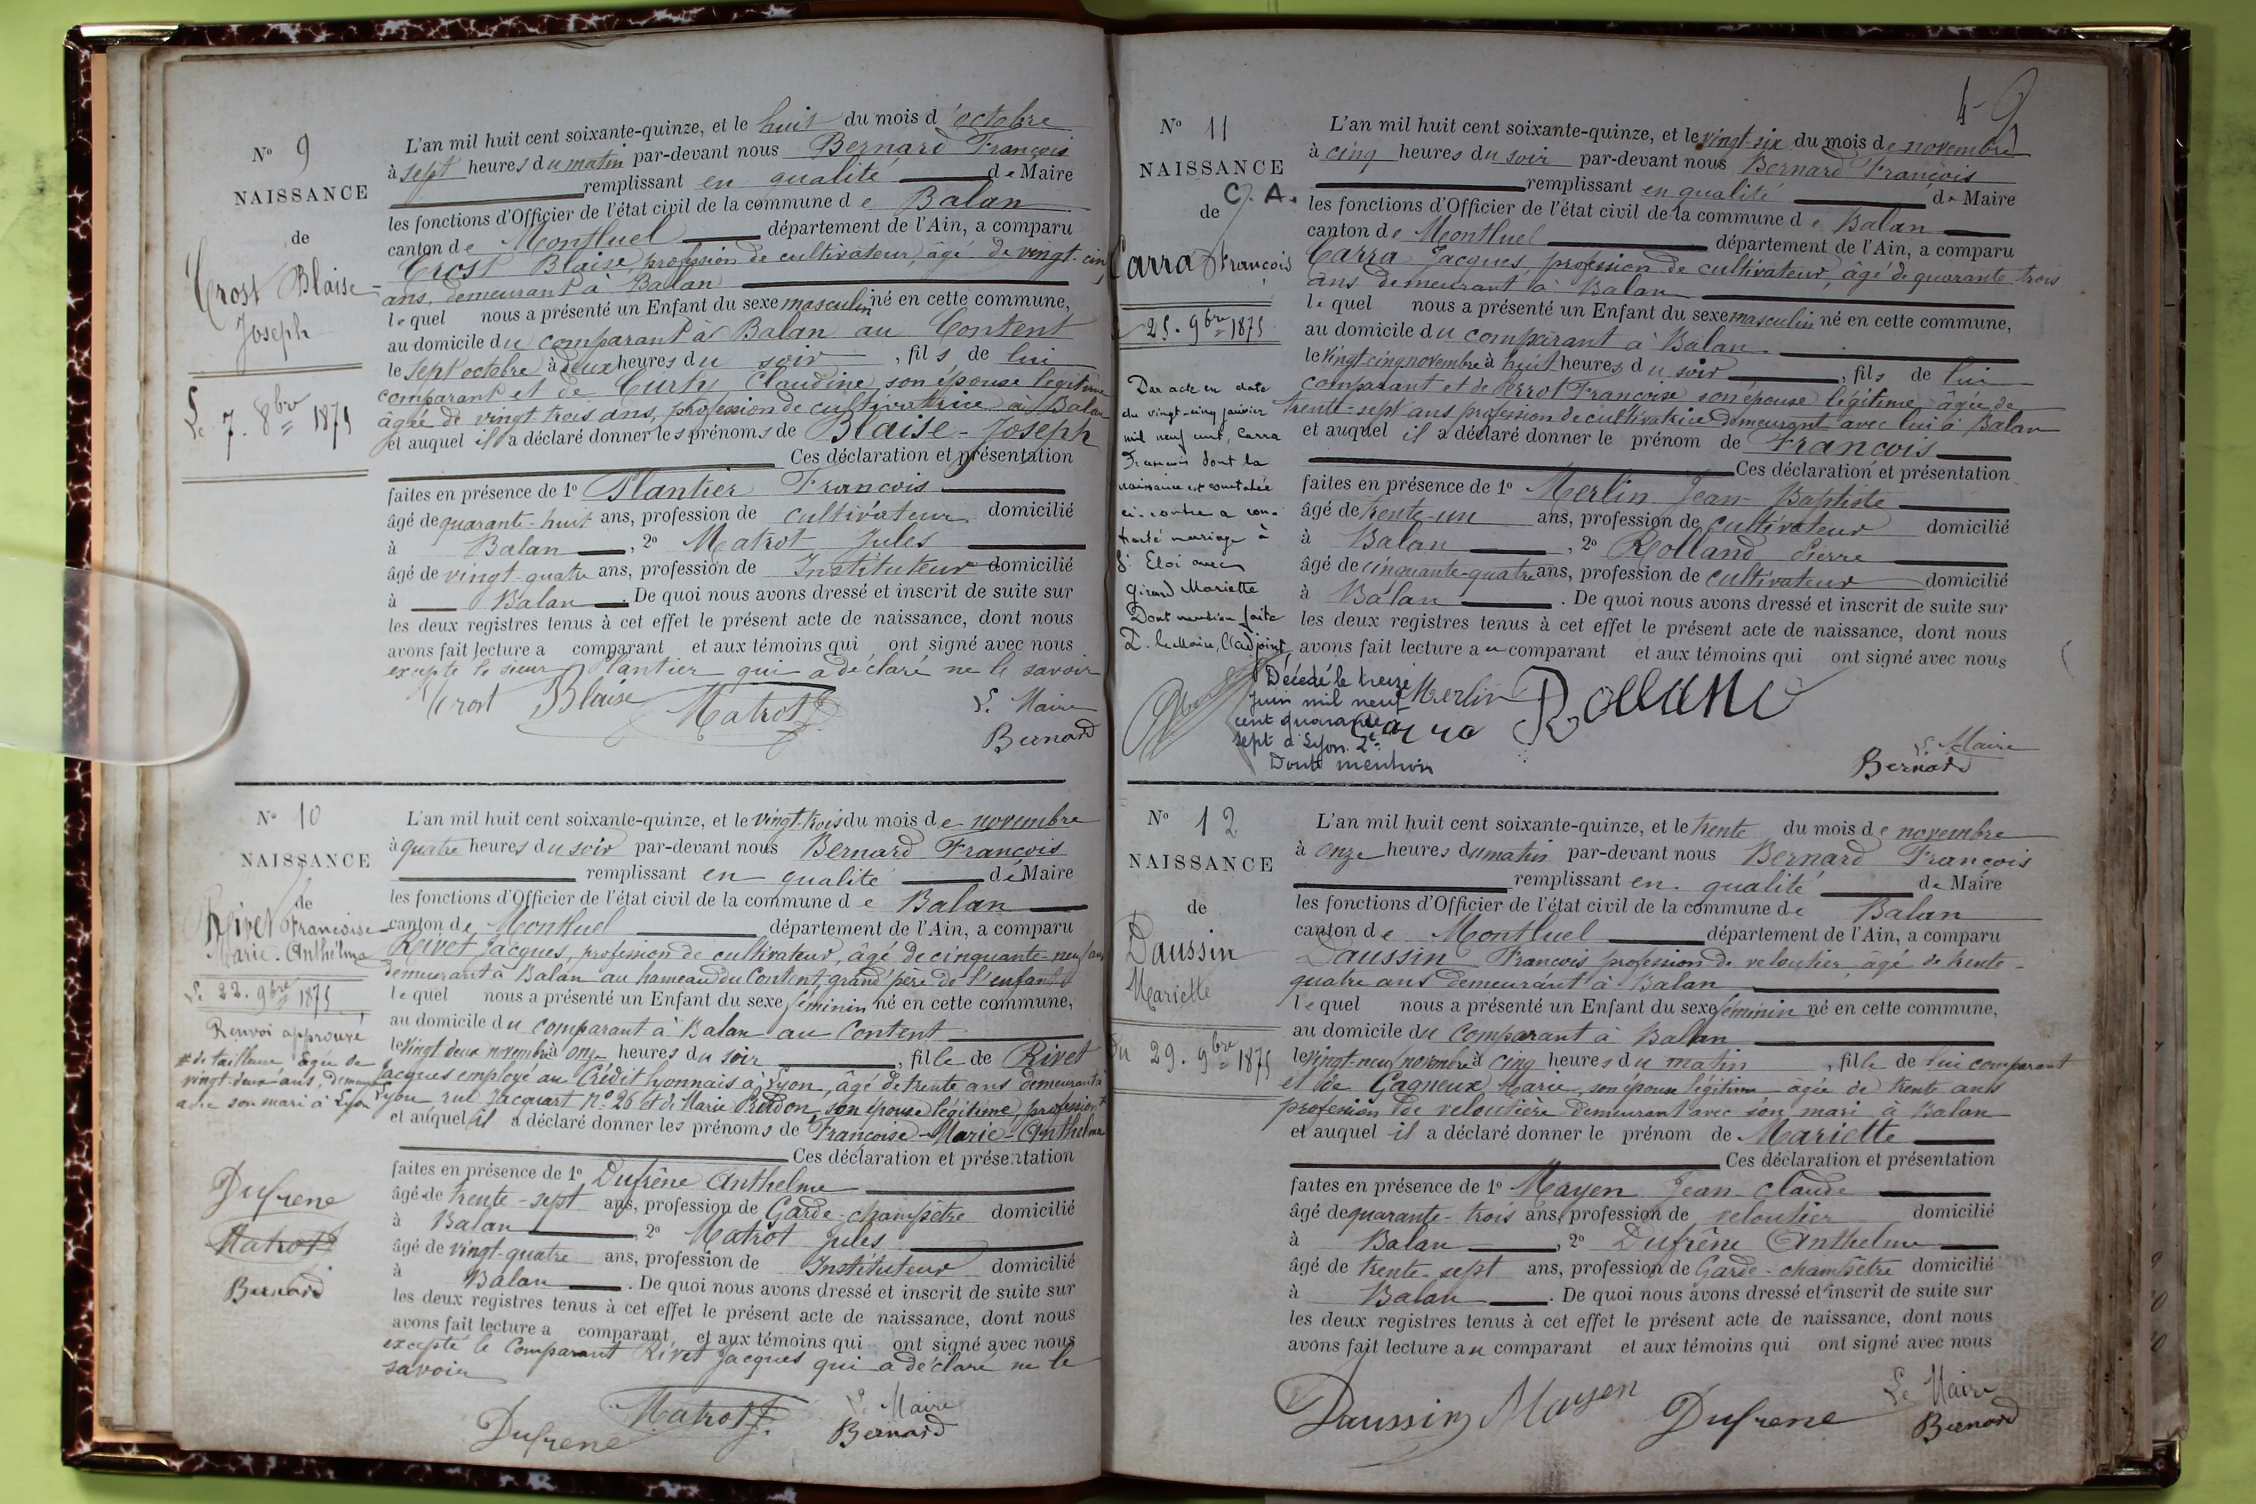 N° 9
NAISSANCE
de
Crost Blaise-
Joseph
Le 7. 8bre 1875
L'an mil huit cent soixante-quinze, et le huit du mois d'octobre
à sept heures du matin par-devant nous Bernard François
remplissant en qualité de Maire
les fonctions d'Officier de l'état civil de la commune de Balan
canton de Montluel département de l'Ain, a comparu
Crost Blaise, profession de cultivateur, âgé de vingt-cinq
ans, demeurant à Balan
lequel nous a présenté un Enfant du sexe masculin né en cette commune,
au domicile du comparant à Balan au Content
le sept octobre à deux heures du soir, fils de lui
comparant et de Curty Claudine son épouse légitime
âgée de vingt trois ans, profession de cultivatrice à Balan
et auquel il a déclaré donner les prénoms de Blaise-Joseph
Ces déclaration et présentation
faites en présence de 1° Plantier François
âgé de quarante-huit ans, profession de cultivateur domicilié
à Balan, 2° Matrot Jules
âgé de vingt-quatre ans, profession de Instituteur domicilié
à Balan. De quoi nous avons dressé et inscrit de suite sur
les deux registres tenus à cet effet le présent acte de naissance, dont nous
avons fait lecture a comparant et aux témoins qui ont signé avec nous
excepté le sieur Plantier qui a déclaré ne le savoir
Crost Blaise Matrot J. Le Maire
Bernard
N° 10
NAISSANCE
de
Rivet Françoise-
Marie-Anthelma
Le 22. 9bre 1875
Renvoi approuvé
* de tailleuse âgée de
vingt-deux ans, demeurant
avec son mari à Lyon
Dufrene
Matrot J
Bernard
L'an mil huit cent soixante-quinze, et le vingt-trois du mois de novembre
à quatre heures du soir par-devant nous Bernard François
remplissant en qualité de Maire
les fonctions d'Officier de l'état civil de la commune de Balan
canton de Montluel département de l'Ain, a comparu
Rivet Jacques, profession de cultivateur, âgé de cinquante-neuf ans
demeurant à Balan au hameau du Content, grand'père de l'enfant
lequel nous a présenté un Enfant du sexe féminin né en cette commune,
au domicile du comparant à Balan au Content
le vingt deux novembre à onze heures du soir, fille de Rivet
Jacques employé au Crédit lyonnais à Lyon, âgé de trente ans demeurant à
Lyon rue Jacquart N° 26 et de Marie Prudon, son épouse légitime, profession *
et auquel il a déclaré donner les prénoms de Françoise-Marie-Anthelma
Ces déclaration et présentation
faites en présence de 1° Dufrêne Anthelme
âgé de trente-sept ans, profession de Garde-champêtre domicilié
à Balan, 2° Matrot Jules
âgé de vingt-quatre ans, profession de Instituteur domicilié
à Balan. De quoi nous avons dressé et inscrit de suite sur
les deux registres tenus à cet effet le présent acte de naissance, dont nous
avons fait lecture a comparant et aux témoins qui ont signé avec nous
excepté le Comparant Rivet Jacques qui a déclaré ne le
savoir
Dufrene Matrot J. Le Maire
Bernard
N° 11
NAISSANCE
C. A.
de
Carra François
25. 9bre 1875
Par acte en date
du vingt-cinq janvier
mil neuf cent, Carra
François dont la
naissance est constatée
ci-contre a con-
tracté mariage à
St Eloi avec
Girard Mariette
Dont mention faite
P. le Maire, l'adjoint
Décédé le treize
juin mil neuf
cent quarante
sept à Lyon 2e
Dont mention
L'an mil huit cent soixante-quinze, et le vingt-six du mois de novembre
à cinq heures du soir par-devant nous Bernard François
remplissant en qualité de Maire
les fonctions d'Officier de l'état civil de la commune de Balan
canton de Montluel département de l'Ain, a comparu
Carra Jacques, profession de cultivateur, âgé de quarante-trois
ans demeurant à Balan
lequel nous a présenté un Enfant du sexe masculin né en cette commune,
au domicile du comparant à Balan.
le vingt cinq novembre à huit heures du soir, fils de lui
comparant et de Perrot Françoise son épouse légitime, âgée de
trente-sept ans profession de cultivatrice demeurant avec lui à Balan
et auquel il a déclaré donner le prénom de François
Ces déclaration et présentation
faites en présence de 1° Merlin Jean-Baptiste
âgé de trente-un ans, profession de cultivateur domicilié
à Balan, 2° Rolland Pierre
âgé de cinquante-quatre ans, profession de cultivateur domicilié
à Balan. De quoi nous avons dressé et inscrit de suite sur
les deux registres tenus à cet effet le présent acte de naissance, dont nous
avons fait lecture au comparant et aux témoins qui ont signé avec nous
Merlin Rolland
Carra
Le Maire
Bernard
N° 12
NAISSANCE
de
Daussin
Mariette
Du 29. 9bre 1875
L'an mil huit cent soixante-quinze, et le trente du mois de novembre
à onze heures du matin par-devant nous Bernard François
remplissant en qualité de Maire
les fonctions d'Officier de l'état civil de la commune de Balan
canton de Montluel département de l'Ain, a comparu
Daussin François profession de veloutier âgé de trente-
quatre ans demeurant à Balan
lequel nous a présenté un Enfant du sexe féminin né en cette commune,
au domicile du comparant à Balan
le vingt-neuf novembre à cinq heures du matin, fille de lui comparant
et de Gagneux Marie, son épouse légitime âgée de trente ans
profession de veloutière demeurant avec son mari à Balan
et auquel il a déclaré donner le prénom de Mariette
Ces déclaration et présentation
faites en présence de 1° Mayen Jean-Claude
âgé de quarante-trois ans, profession de veloutier domicilié
à Balan, 2° Dufrêne Anthelme
âgé de trente-sept ans, profession de Garde-champêtre domicilié
à Balan. De quoi nous avons dressé et inscrit de suite sur
les deux registres tenus à cet effet le présent acte de naissance, dont nous
avons fait lecture au comparant et aux témoins qui ont signé avec nous
Daussin Mayen Dufrene Le Maire
Bernard